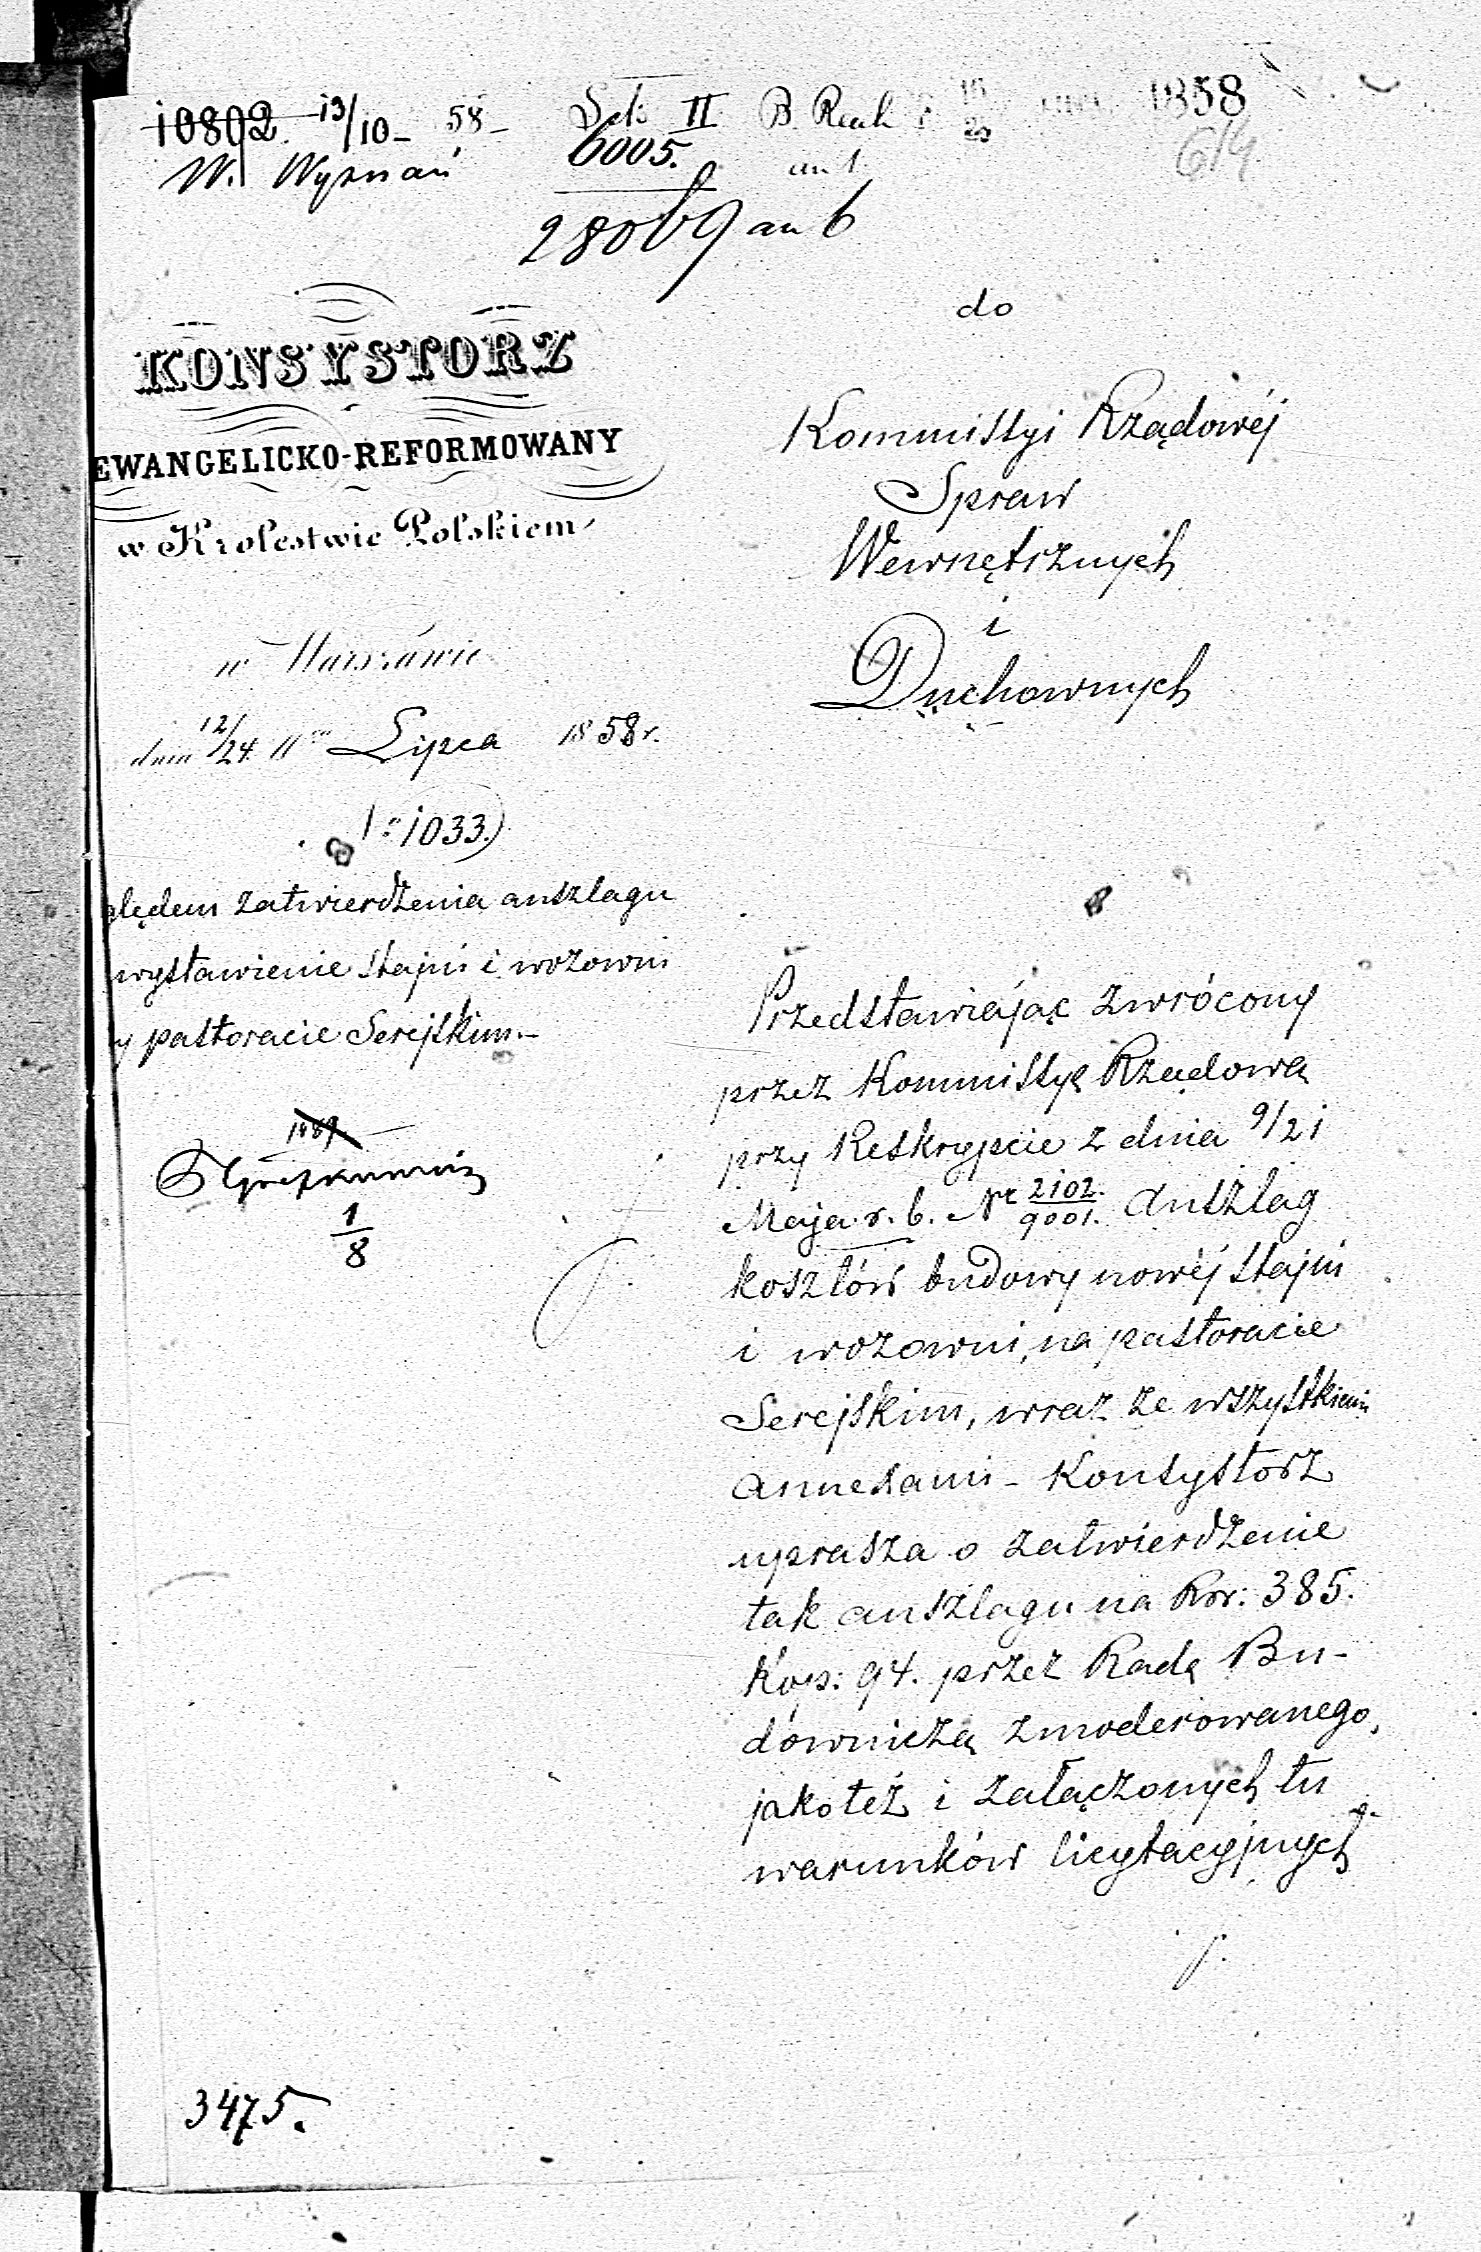 10802. 13/10 - 58 -
W. Wyznań
Sek: II
6005.
28069 an 6
an 1
1858
614
KONSYSTORZ
EWANGELICKO-REFORMOWANY
w Krolestwie Polskiem
w Warszawie
dnia 12/24 Lipca 1858 r.
1033.)
lędem zatwierdzenia anszlagu
wystawienie stajni i wozowni
y pastoracie Serejskim.-
1/8
do
Kommissyi Rządowéj
Spraw
Wewnętrznych
i
Duchownych
Przedstawiając zwrócony
przez Kommissyę Rządową
przy Reskrypcie z dnia 9/21
Maja r. b. Nr 2102/9001. anszlag
kosztów budowy nowéj stajni
i wozowni, na pastoracie
Serejskim, wraz ze wszystkiemi
annexami - Konsystorz
uprasza o zatwierdzenie
tak anszlagu na Rsr: 385.
Kop: 94. przez Radę Bu-
downiczą zmoderowanego,
jakoteż i załączonych tu
warunków licytacyjnych
3475.